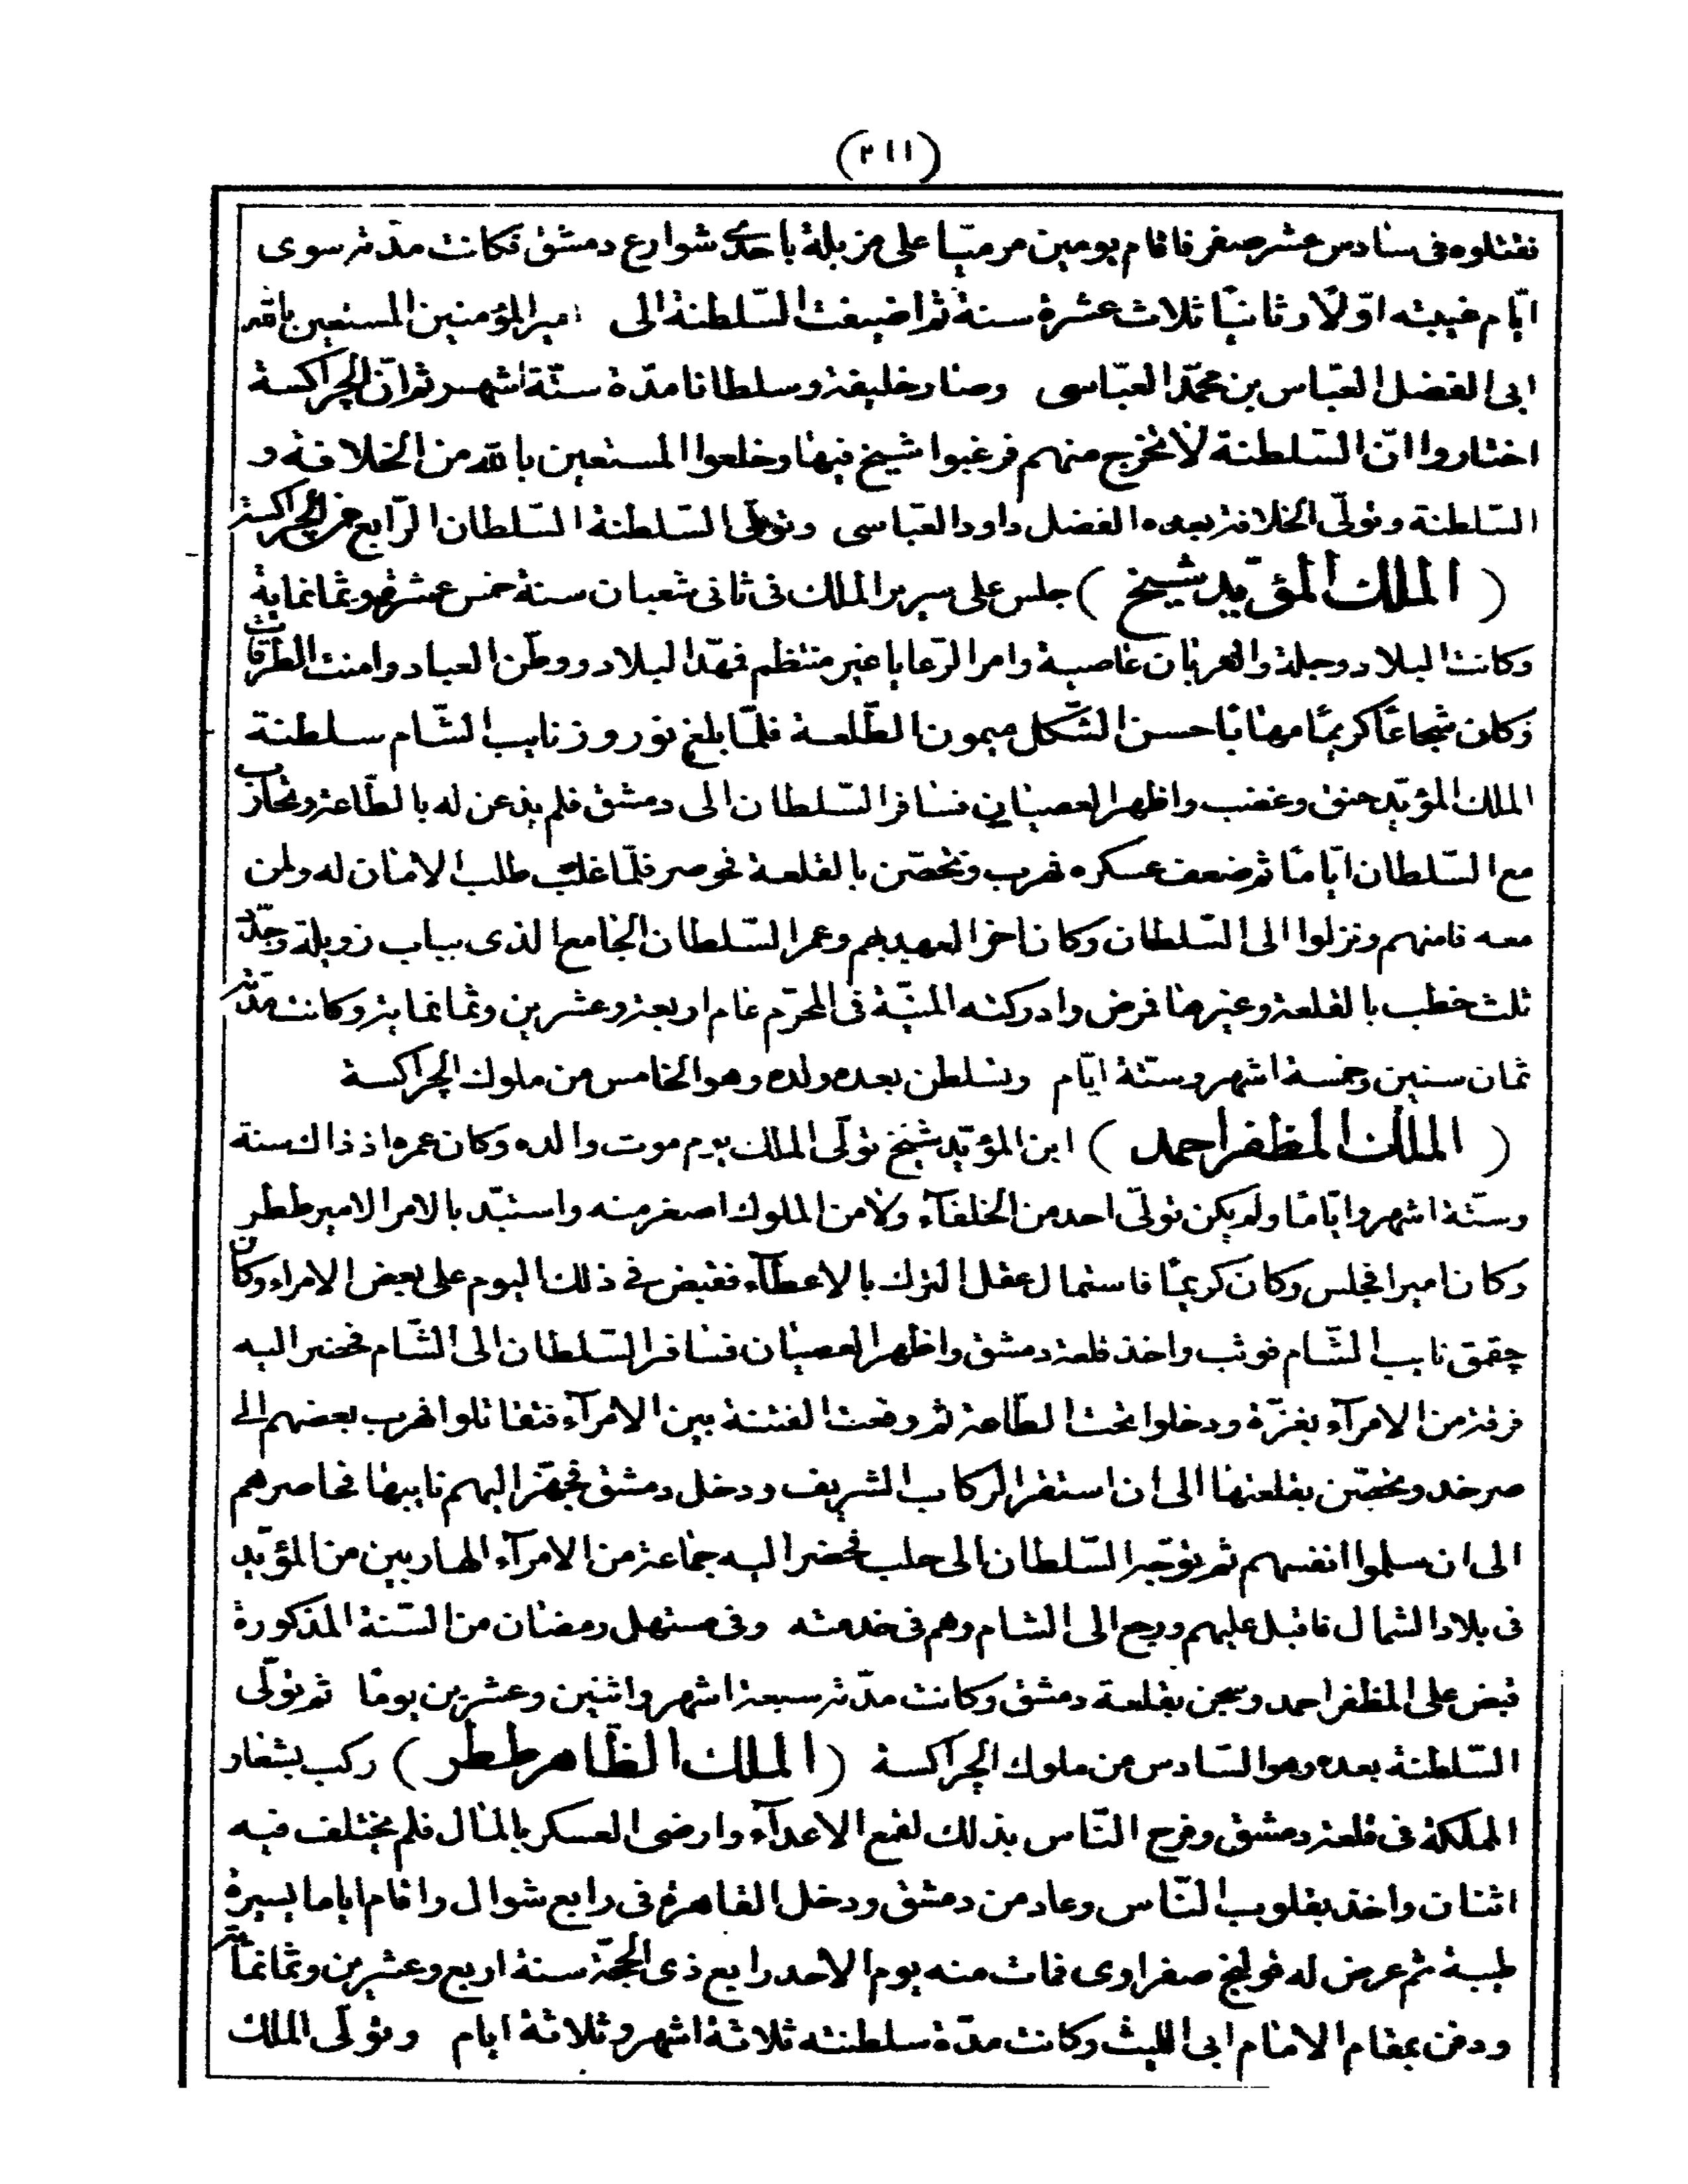 (٢١١)
فقتلوه فى سادس عشر صفر فاقام يومين مرميّا على مزبلة باحدى شوارع دمشق فكانت مدّته سوى
ايّام غيبته اوّلا وثانيًا ثلاث عشرة سنة ثمّ اضيفت السّلطنة الى امير المؤمنين المستعين بالله
ابى الفضل العبّاس بن محمّد العبّاسى وصار خليفة وسلطانا مدّة ستّة اشهر ثمّ انّ الجراكسة
اختاروا انّ السّلطنة لا تخرج منهم فرغبوا شيخ فيها وخلعوا المستعين بالله من الخلافة و
السّلطنة وتولّى الخلافة بعده الفضل داود العباسى وتولّى السّلطنة السّلطان الرّابع من الجراكسة
(الملك المؤيّد شيخ) جلس على سرير الملك فى ثانى شعبان سنة خمس عشرة وثمانماية
وكانت البلاد وجلة والعربان عاصية وامر الرّعايا غير منتظم فهّد البلاد ووطّن العباد وامنت الطرقات
وكان شجاعًا كريمًا مهابًا حسن الشّكل ميمون الطّلعة فلمّا بلغ نوروز نايب الشّام سلطنة
الملك المؤيّد حنق وغضب واظهر العصيان فسافر السّلطان الى دمشق فلم يذعن له بالطّاعة وتحارب
مع السّلطان ايّامًا ثم ضعف عسكره فهرب وتحصّن بالقلعة فحوصر فلمّا غلب طلب الامان له ولمن
معه فامنهم ونزلوا الى السّلطان وكان اخر العهد بهم وعمر السّلطان الجامع الذى بباب زويلة وجدّد
ثلث خطب بالقلعة وغيرها فمرض وادركته المنيّة فى المحرّم عام اربعة وعشرين وثمانماية وكانت مدّته
ثمان سنين وخمسة اشهر وستّة ايّام وتسلطن بعده ولده وهو الخامس من ملوك الجراكسة
(الملك المظفر احمد) ابن المؤيّد شيخ تولّى الملك يوم موت والده وكان عمره اذ ذاك سنة
وستّة اشهر وايّامًا ولم يكن تولّى احد من الخلفآء ولا من الملوك اصغر منه واستبّد بالامر الامير ططر
وكان امير مجلس وكان كريمًا فاستمال عقل الترك بالاعطآء فقبض فى ذلك اليوم على بعض الامراء وكان
چقمق نايب الشّام فوثب واخذ قلعة دمشق واظهر العصيان فسافر السّلطان الى الشّام فحضر اليه
فرقة من الامرآء بغزّة ودخلوا تحت الطّاعة ثم وقعت الفتنة بين الامرآء فتقاتلوا فهرب بعضهم الى
صرخد وتحصّن بقلعتها الى ان استقر الركاب الشريف ودخل دمشق فجهّز اليهم نايبها فحاصرهم
الى ان سلموا انفسهم ثم توجّه السّلطان الى حلب فحضر اليه جماعة من الامرآء الهاربين من المؤيّد
فى بلاد الشمال فاقبل عليهم ورجع الى الشام وهم فى خدمته وفى مستهل رمضان من السّنة المذكورة
قبض على المظفر احمد وسجن بقلعة دمشق وكانت مدّته سبعة اشهر واثنين وعشرين يومًا ثم تولّى
السّلطنة بعده وهو السّادس من ملوك الجراكسة (الملك الظّاهر ططر) ركب بشعار
المملكة فى قلعة دمشق وفرح النّاس بذلك لقمع الاعدآء وارضى العسكر بالمال فلم يختلف فيه
اثنان واخذ بقلوب النّاس وعاد من دمشق ودخل القاهرة فى رابع شوال واقام اياما يسيرة
طيبة ثم عرض له قولنج صفراوى فمات منه يوم الاحد رابع ذى الحجّة سنة اربع وعشرين وثمانماية
ودفن بمقام الامام ابى الليث وكانت مدّة سلطنته ثلاثة اشهر وثلاثة ايام وتولّى الملك